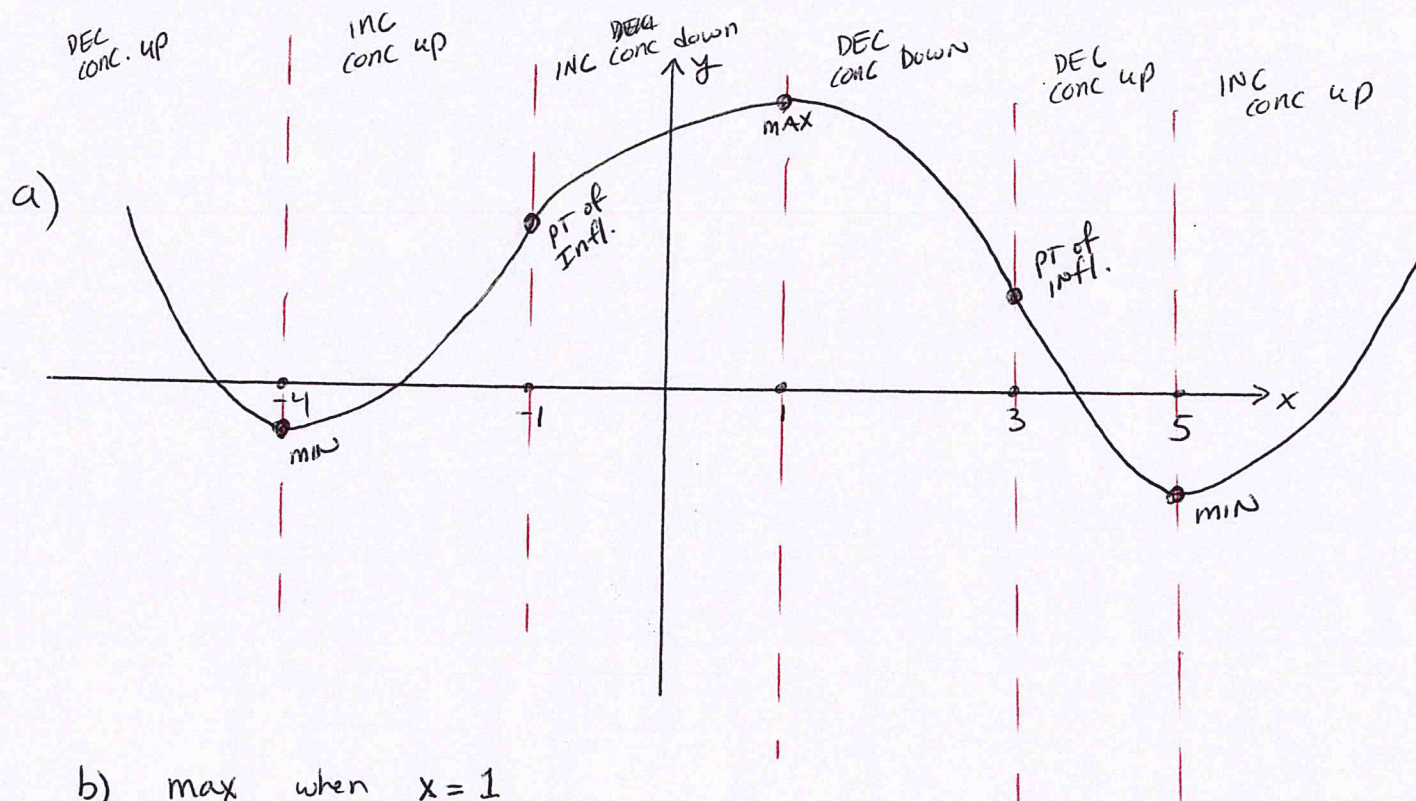 DEC
conc. up
INC
conc up
INC conc down
DEC
conc Down
DEC
conc up
INC
conc up
y
a)
MAX
PT of
Infl.
PT of
infl.
-4
-1
1
3
5
x
MIN
MIN
b) max when x = 1